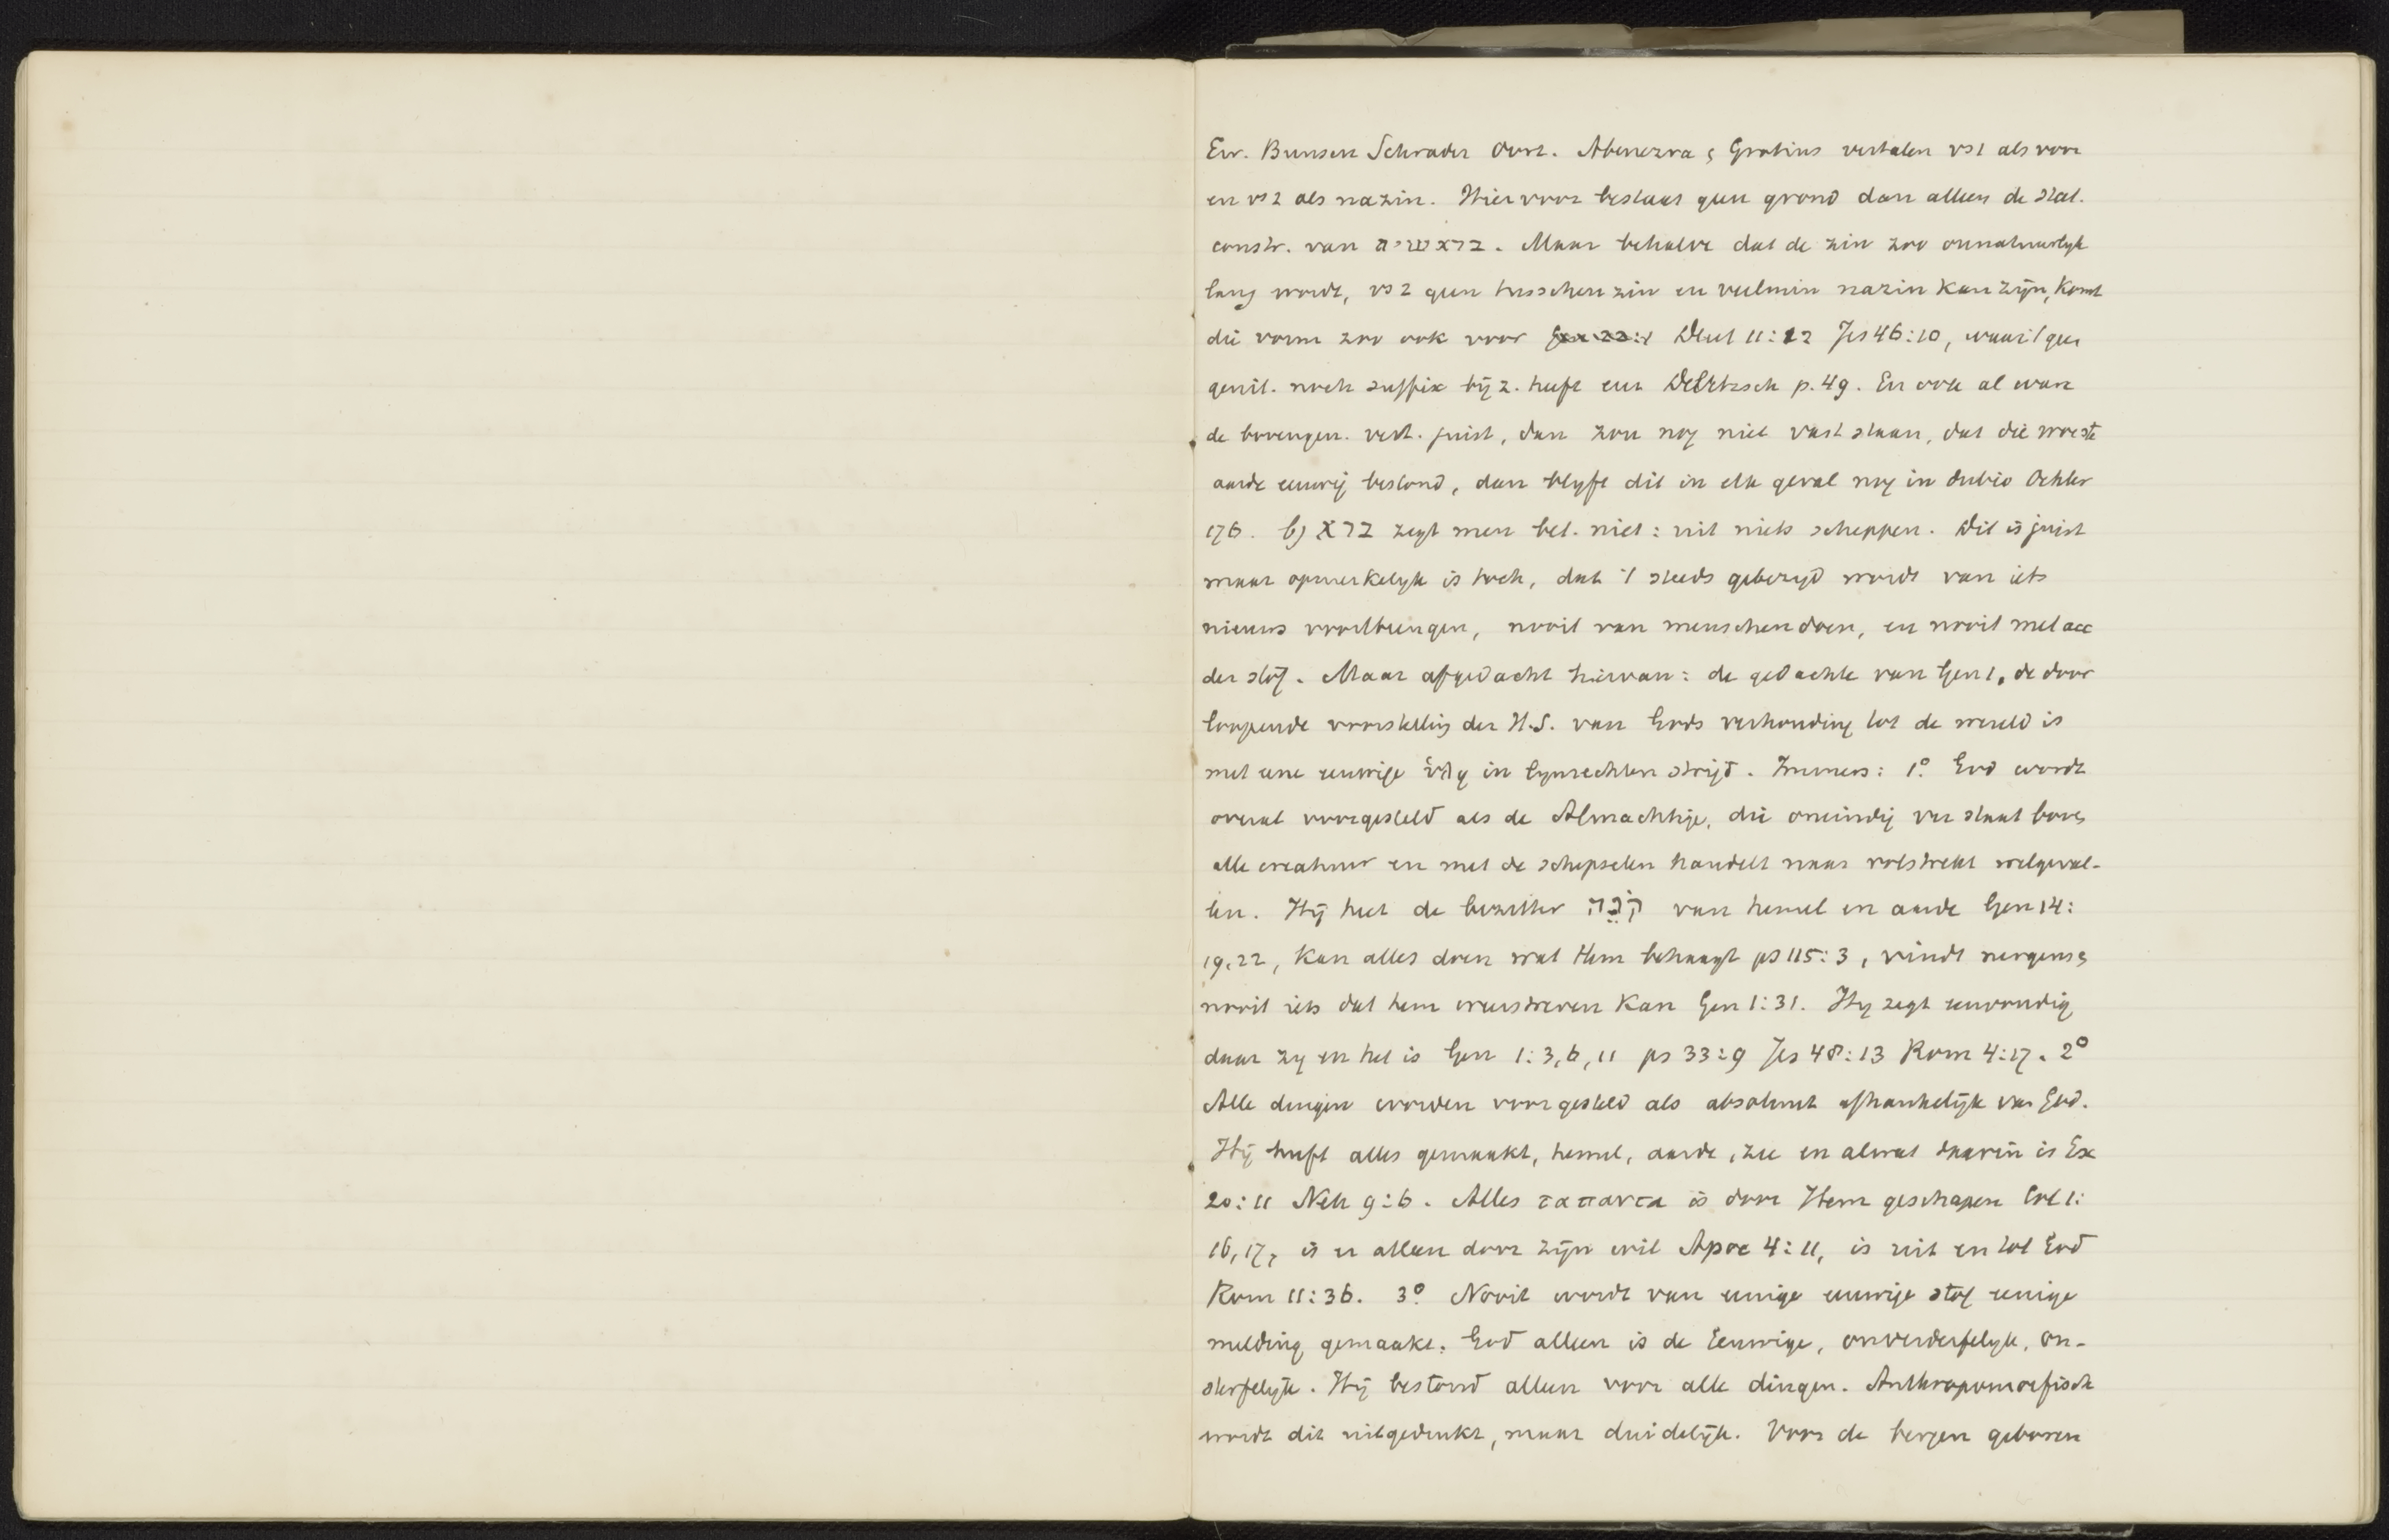 Ew. Bunsen Schrader Oort. Abenezra & Grotius vertalen vs1 als voor
en vs2 als nazin. Hiervoor bestaat geen grond dan alleen de stat.
constr. van בראשית. Maar behalve dat de zin zoo onnatuurlyk
lang wordt, vs2 geen tusschenzin en veelmin nazin kan zijn, komt
die vorm zoo ook voor Deut 11:12 Jes 46:10, waar 't geen
genit. noch suffix bij z. heeft Delitzsch p. 49. En ook al ware
de bovengen. vert. juist, dan zou nog niet vast staan, dat die woeste
aarde eeuwig bestond, dan blyft dit in elk geval nog in dubio Oehler
176. b) ברא zegt men bet. niet: uit niets scheppen. Dit is juist
maar opmerkelyk is toch, dat 't steeds gebezigd wordt van iets
nieuws voortbrengen, nooit van menschen doen, en nooit met acc
der stof. Maar afgedacht hiervan: de gedachte van Gen 1, de door
loopende voorstelling der H.S. van Gods verhouding tot de wereld is
met eene eeuwige ὕλη in lynrechten strijd. Immers: 1° God wordt
overal voorgesteld als de Almachtige, die oneindig ver staat boven
alle creatuur en met de schepselen handelt naar volstrekt welgeval-
len. Hij heet de bezitter קֹנֵה van hemel en aarde Gen 14:
19,22, kan alles doen wat Hem behaagt ps 115:3, vindt nergens &
nooit iets dat hem weerstreven kan Gen 1:31. Hy zegt eenvoudig
daar zy en het is Gen 1:3,6,11 ps 33:9 Jes 48:13 Rom 4:17. 2°
Alle dingen worden voorgesteld als absoluut afhankelijk van God.
Hij heeft alles gemaakt, hemel, aarde, zee en alwat daarin is Ex
20:11 Neh 9:6. Alles τα παντα is door Hem geschapen Col 1:
16,17, is er alleen door zijn wil Apoc 4:11, is uit en tot God
Rom 11:36. 3° Nooit wordt van eenige eeuwige stof eenige
melding gemaakt. God alleen is de Eeuwige, onverderfelyk, on-
sterfelyk. Hij bestond alleen voor alle dingen. Anthropomorfisch
wordt dit uitgedrukt, maar duidelijk. Voor de bergen geboren